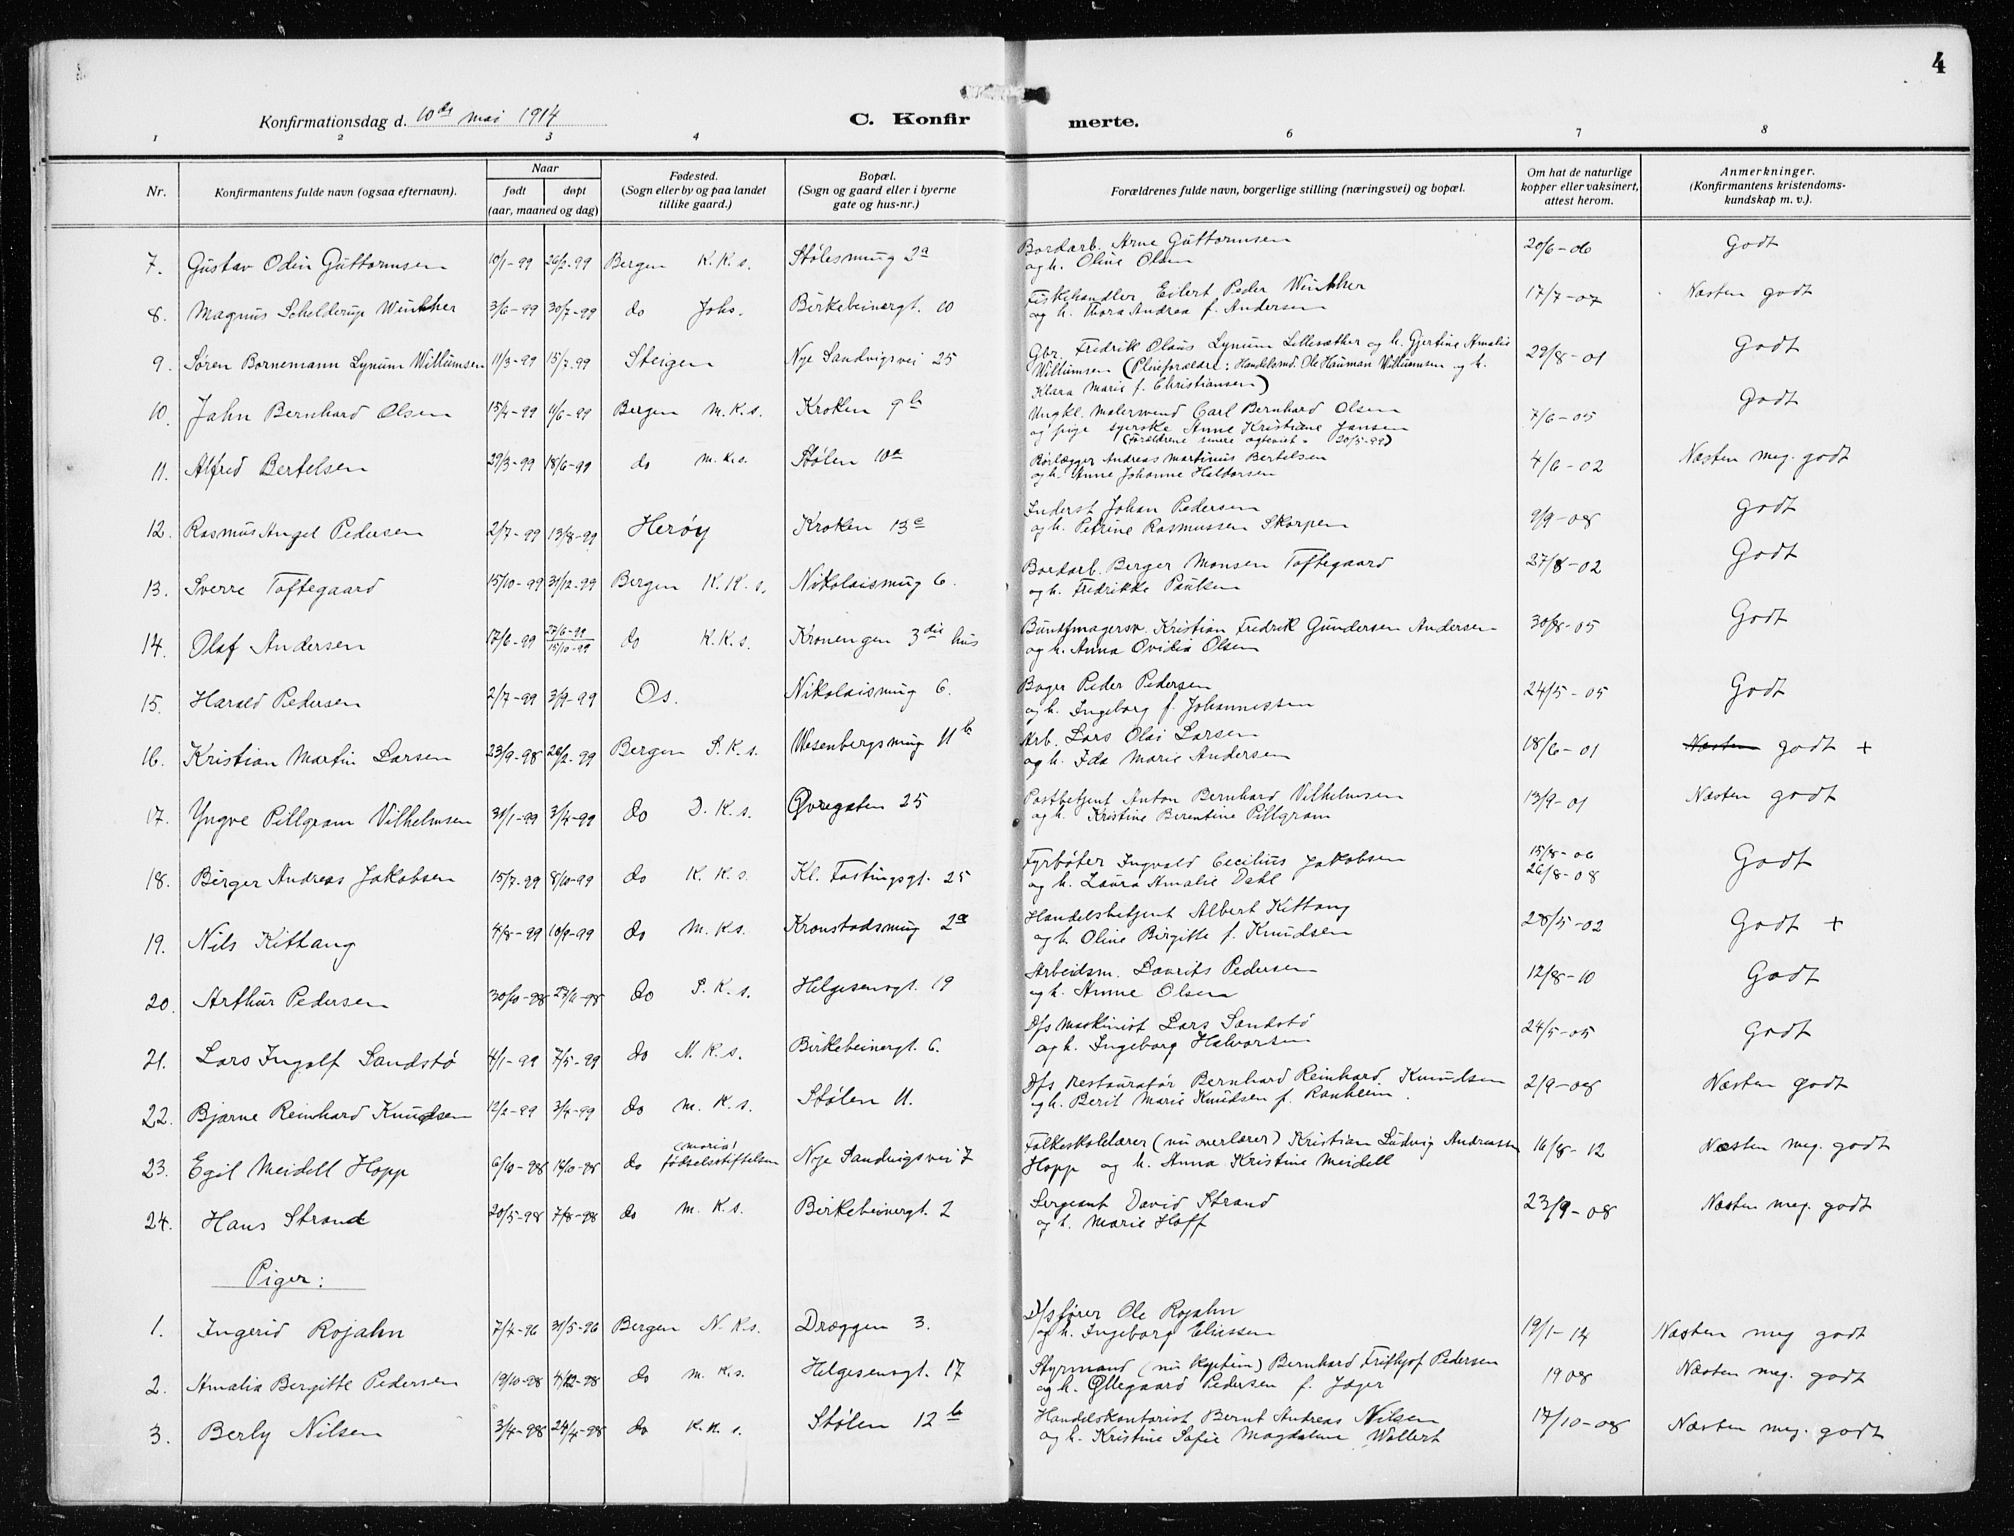 4
Konfirmationsdag d. 10de mai 1914
C. Konfirmerte.
1 2 3 4 6 7 8
Nr. Konfirmantens fulde navn (ogsaa efternavn). Naar født døpt (aar, maaned og dag) Fødested. (Sogn eller by og paa landet tillike gaard.) Bopæl. (Sogn og gaard eller i byerne gate og hus-nr.) Forældrenes fulde navn, borgerlige stilling (næringsvei) og bopæl. Om hat de naturlige kopper eller vaksinert, attest herom. Anmerkninger. (Konfirmantens kristendomskundskap m. v.).
7. Gustav Odin Guttormsen 10/1-99 26/2-99 Bergen K.K.s. Stølesmug 2a Bordarb. Arne Guttormsen 20/6-06 Godt
og h. Oline Olsen
8. Magnus Schelderup Winther 3/6-99 30/7-99 do Johs. Birkebeinergt. 10 Fiskehandler Eilert Peder Winther 17/7-07 Næsten godt
og h. Thora Andrea f. Andersen
9. Søren Bornemann Lynum Willumsen 11/3-99 15/7-99 Steigen Nye Sandvigsvei 25 Gbr. Fredrik Olaus Lynum Lillesæther og h. Gjertine Amalie 29/8-01 Godt
Willumsen (Pleieforældre: Handelsmd. Ole Hauman Willumsen og h.
Klara Marie f. Christiansen)
10. Jahn Bernhard Olsen 15/4-99 11/6-99 Bergen m.K.s. Kroken 9b Ungkl. malersvend Carl Bernhard Olsen 7/6-05 Godt
og pige syerske Anne Kristiane Jansen
(Forældrene senere egteviet 20/5-99)
11. Alfred Bertelsen 29/3-99 18/6-99 do m.K.s. Stølen 10a Rørlægger Andreas Martinus Bertelsen 4/6-02 Næsten meg. godt
og h. Anne Johanne Haldorsen
12. Rasmus Angel Pedersen 2/7-99 13/8-99 Herøy Kroken 13e Inderst Johan Pedersen 9/9-08 Godt
og h. Petrine Rasmussen Skorpen
13. Sverre Toftegaard 15/10-99 31/12-99 Bergen K.K.s. Nikolaismug 6. Bordarb. Berger Monsen Toftegaard 27/8-02 Godt
og h. Fredrikke Paulsen
14. Olaf Andersen 17/6-99 27/6-99 15/10-99 do K.K.s. Kronengen 3die hus Buntmagersv. Kristian Fredrik Gundersen Andersen 30/8-05 Godt
og h. Anna Ovidia Olsen
15. Harald Pedersen 2/7-99 3/9-99 Os. Nikolaismug 6. Bager Peder Pedersen 24/5-05 Godt
og h. Ingeborg f. Johannessen
16. Kristian Martin Larsen 23/9-98 26/2-99 Bergen S.K.s. Wesenbergsmug 11b Arb. Lars Olai Larsen 18/6-01 Næsten godt +
og h. Ida Marie Andersen
17. Yngve Pillgram Vilhelmsen 31/1-99 3/4-99 do D.K.s. Øvregaten 25 Postbetjent Anton Bernhard Vilhelmsen 13/9-01 Næsten godt
og h. Kristine Berentine Pillgram
18. Birger Andreas Jakobsen 15/7-99 8/10-99 do K.K.s. Kl. Fastingsgt. 25 Fyrbøter Ingvald Cecilius Jakobsen 15/8-06 26/8-08 Godt
og h. Laura Amalie Dahl
19. Nils Kittang 4/8-99 10/9-99 do m.K.s. Kronstadsmug 2a Handelsbetjent Albert Kittang 28/5-02 Godt +
og h. Oline Birgitte f. Knudsen
20. Arthur Pedersen 30/10-98 27/11-98 do S.K.s. Helgesensgt. 19 Arbeidsm. Laurits Pedersen 12/8-10 Godt
og h. Anne Olsen
21. Lars Ingolf Sandstø 4/1-99 7/5-99 do N.K.s. Birkebeinergt. 6. D/s maskinist Lars Sandstø 24/5-05 Godt
og h. Ingeborg Halvorsen
22. Bjarne Reinhard Knudsen 12/2-99 3/4-99 do m.K.s. Stølen 11. D/s restauratør Bernhard Reinhard Knudsen 2/9-08 Næsten godt
og h. Berit Marie Knudsen f. Ranheim.
23. Egil Meidell Hopp 6/10-98 14/10-98 do (maria) fødselsstiftelsen Nye Sandvigsvei 7 Folkeskolelærer (nu overlærer) Kristian Ludvig Andreassen 16/8-12 Næsten meg. godt
Hopp og h. Anna Kristine Meidell
24. Hans Strand 20/5-98 7/8-98 do m.K.s. Birkebeinergt. 2 Sergeant David Strand 23/9-08 Næsten meg. godt
og h. Marie Hoff
Piger:
1. Ingerid Rojahn 7/4-96 31/5-96 Bergen N.K.s. Dræggen 3. D/sfører Ole Rojahn 19/1-14 Næsten meg godt
og h. Ingeborg Eliassen
2. Amalia Bergitte Pedersen 19/10-98 4/12-98 do m.K.s. Helgesensgt. 17 Styrmand (nu kaptein) Bernhard Frithjof Pedersen 1908 Næsten meg. godt
og h. Øllegaard Pedersen f. Jæger
3. Berly Nilsen 3/4-98 24/4-98 do K.K.s. Stølen 12b Handelskontorist Bernt Andreas Nilsen 17/10-08 Næsten meg. godt
og h. Kristine Sofie Magdalene Wollert